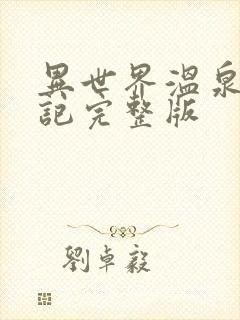 異世界溫泉
記完整版
劉卓毅